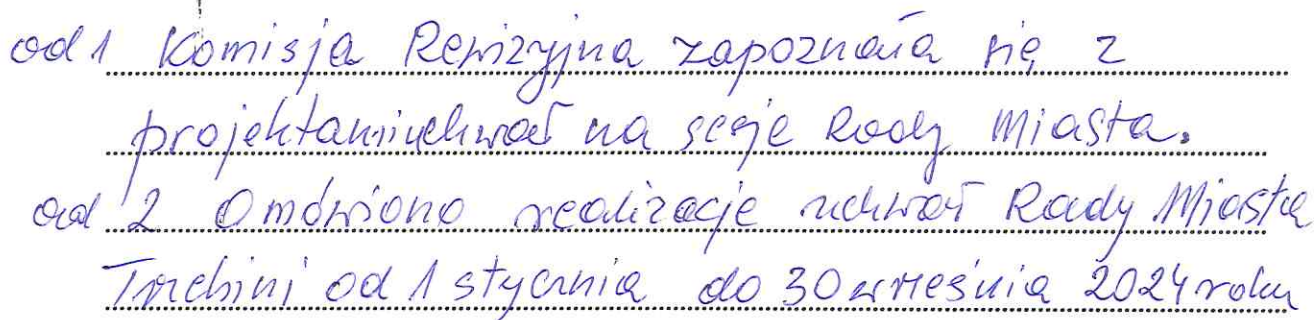 ad 1 Komisja Rewizyjna zapoznała się z
projektami uchwał na sesje Rady Miasta.
ad 2 Omówiono realizacje uchwał Rady Miasta
Trzebini od 1 stycznia do 30 września 2024 roku